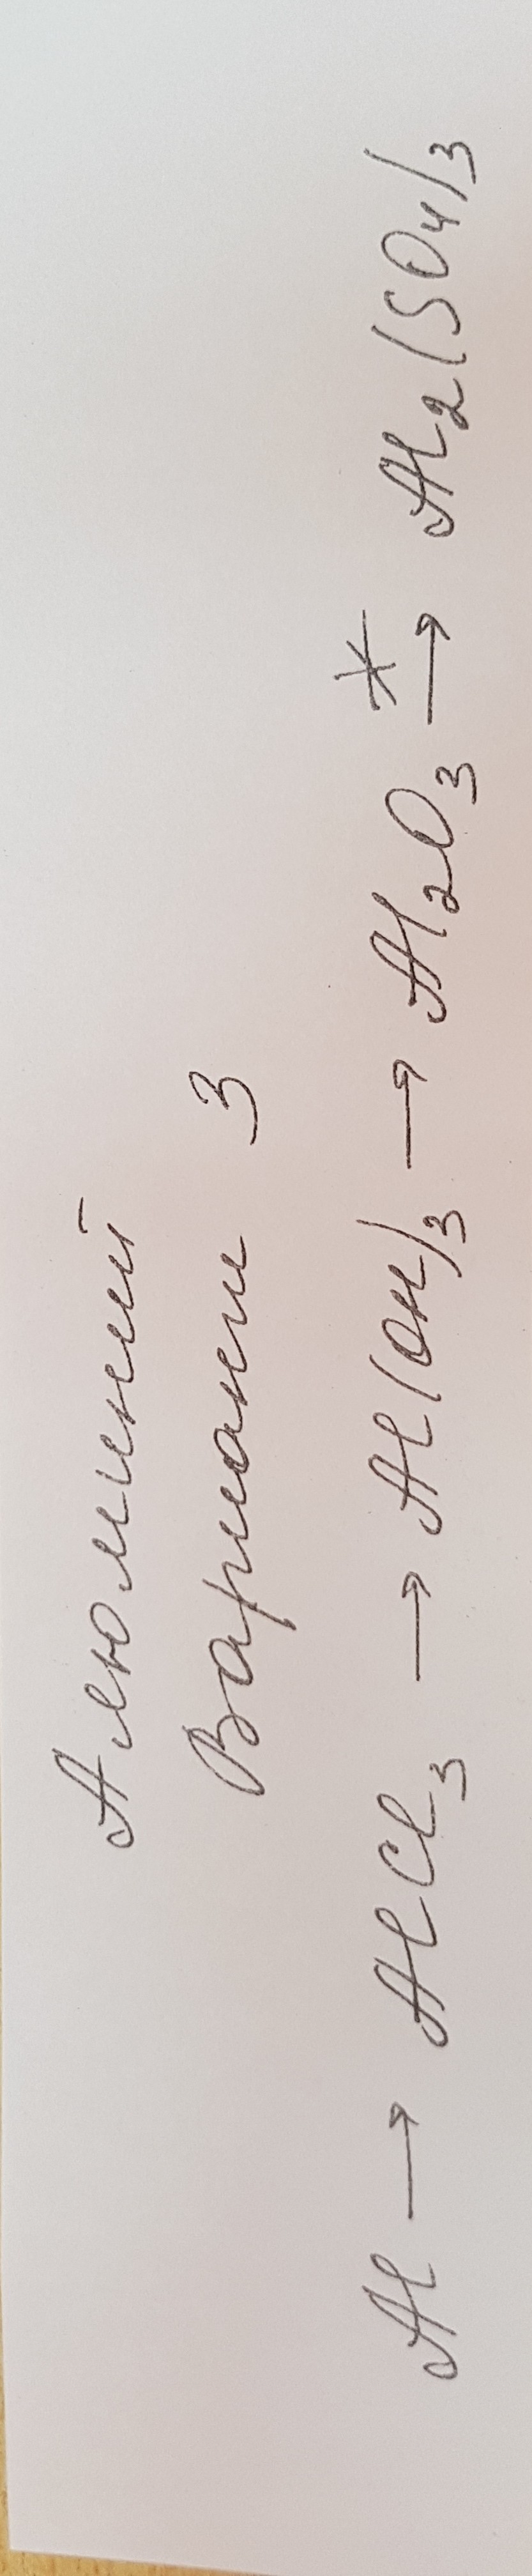 Алюминий
Вариант 3
Al → AlCl3 → Al(OH)3 → Al2O3 →* Al2(SO4)3